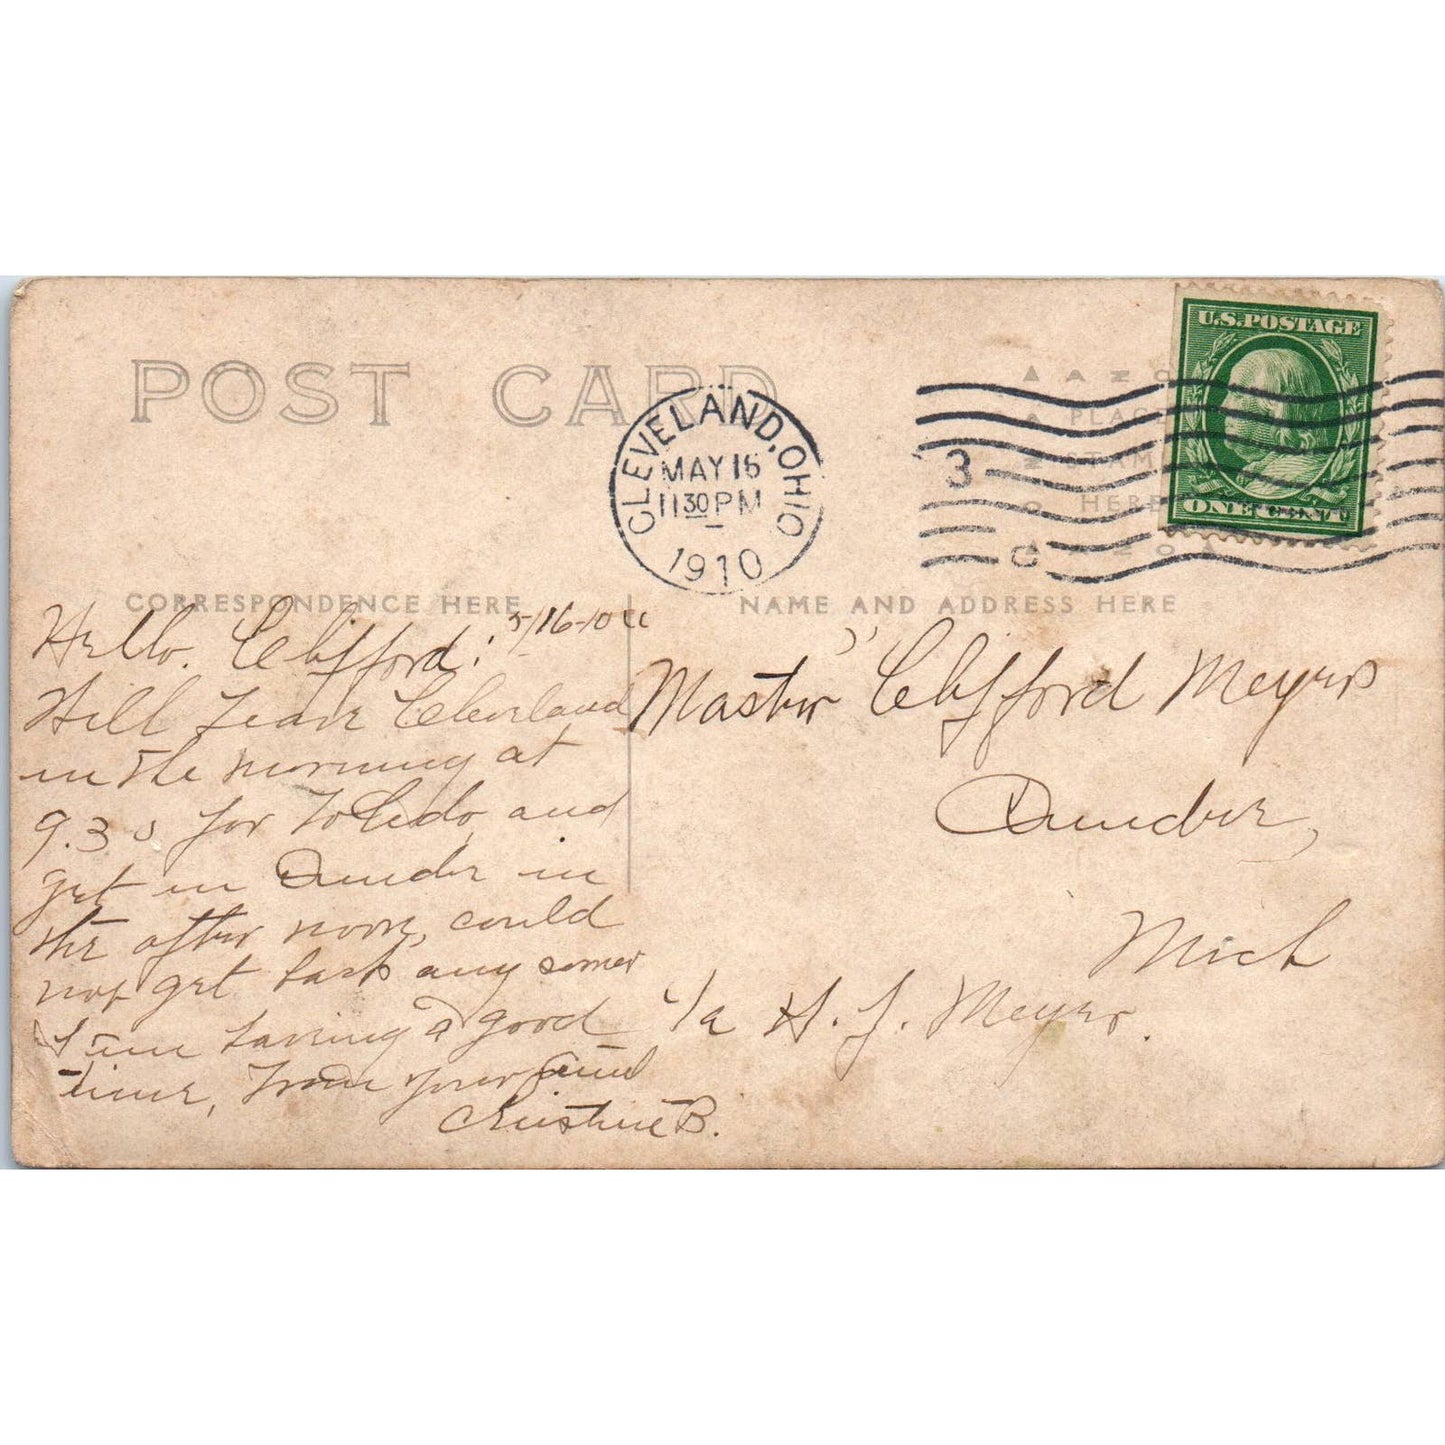 POST CARD
CLEVELAND, OHIO
MAY 16
11 30 PM
1910
3
C
U.S. POSTAGE
ONE CENT
PLACE
STAMP
HERE
CORRESPONDENCE HERE
NAME AND ADDRESS HERE
5/16-10
Hello. Clifford:
Will leave Cleveland
in the morning at
9.30 for Toledo, and
get in Dundee in
the after noon, could
not get back any sooner
I am having a good
time, From your Aunt
Christine B.
Master Clifford Meyers
Dundee,
Mich
c/o H. J. Meyers.